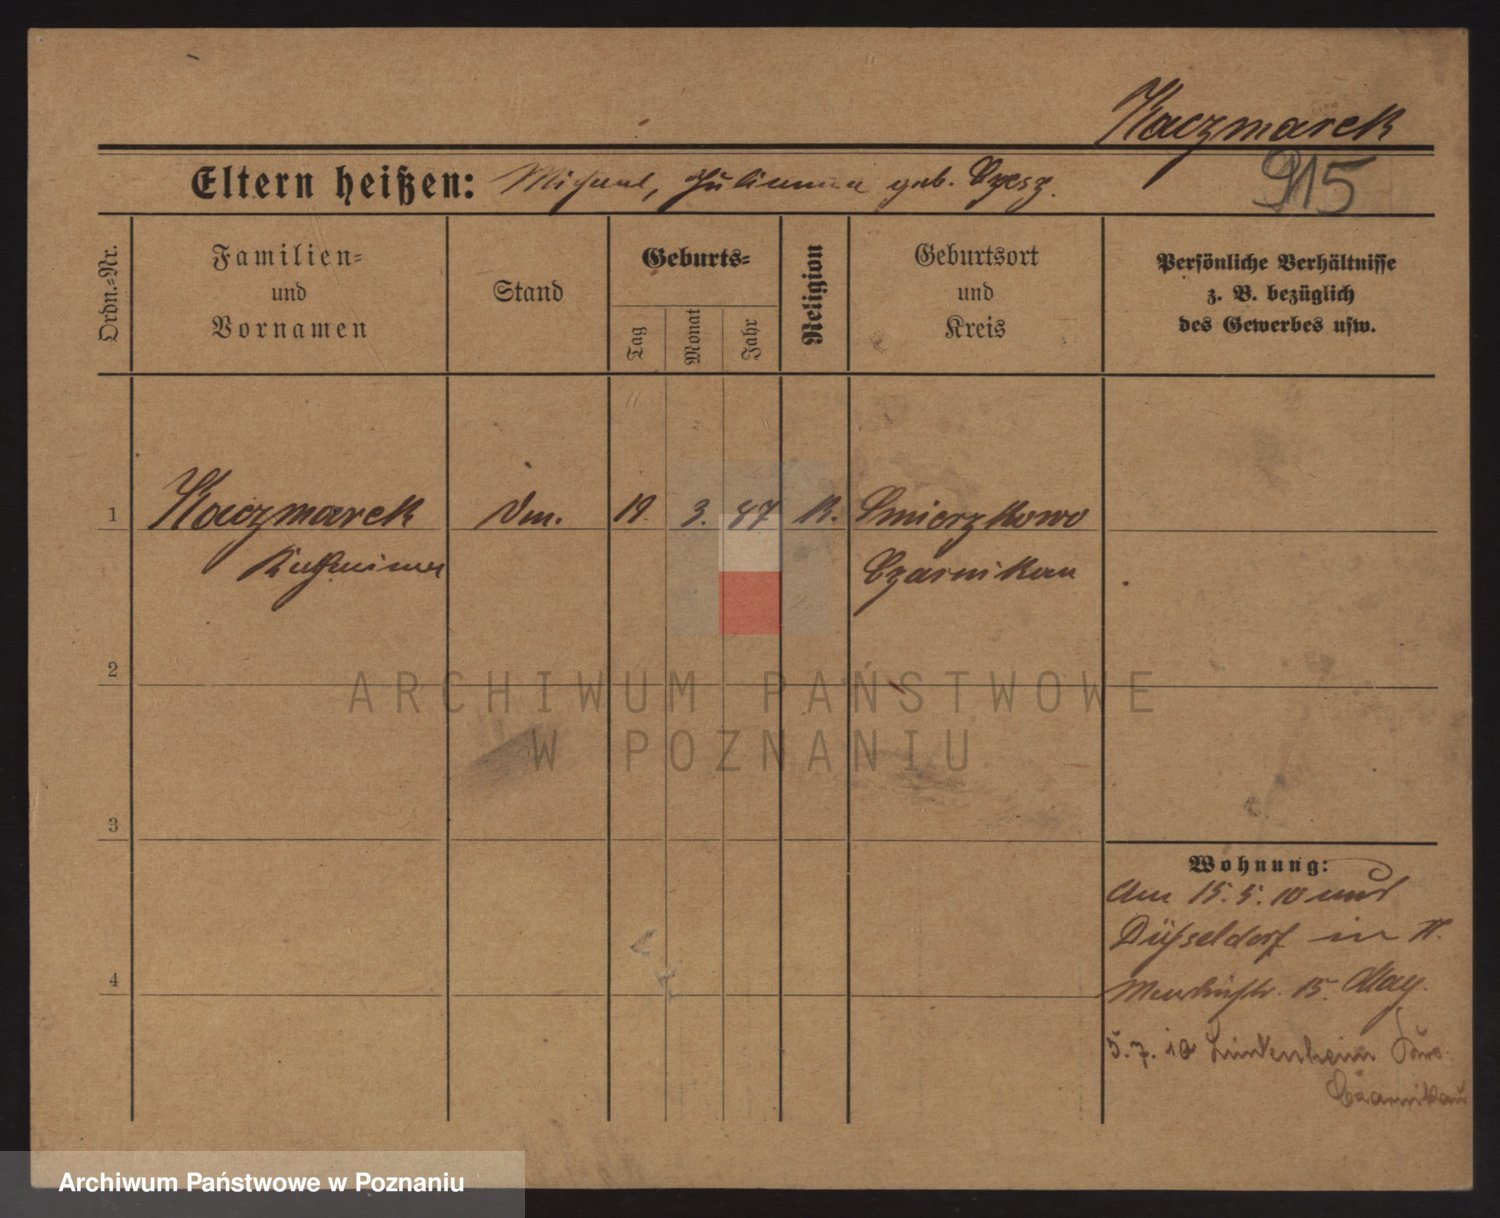 Kaczmarek
915
Eltern heißen: Michael, Julianna geb.
Ordn.-Nr.
Familien-
und
Vornamen
Stand
Geburts-
Tag
Monat
Jahr
Religion
Geburtsort
und
Kreis
Persönliche Verhältnisse
z. B. bezüglich
des Gewerbes usw.
1 Kaczmarek 19. 3. 47 K. Smierzkowo
Czarnikau
2
3
4
Wohnung:
Am 15. 5. 10 und
Düsseldorf in
15. May.
5. 7. 10
Czarnikau
ARCHIWUM PAŃSTWOWE
W POZNANIU
Archiwum Państwowe w Poznaniu